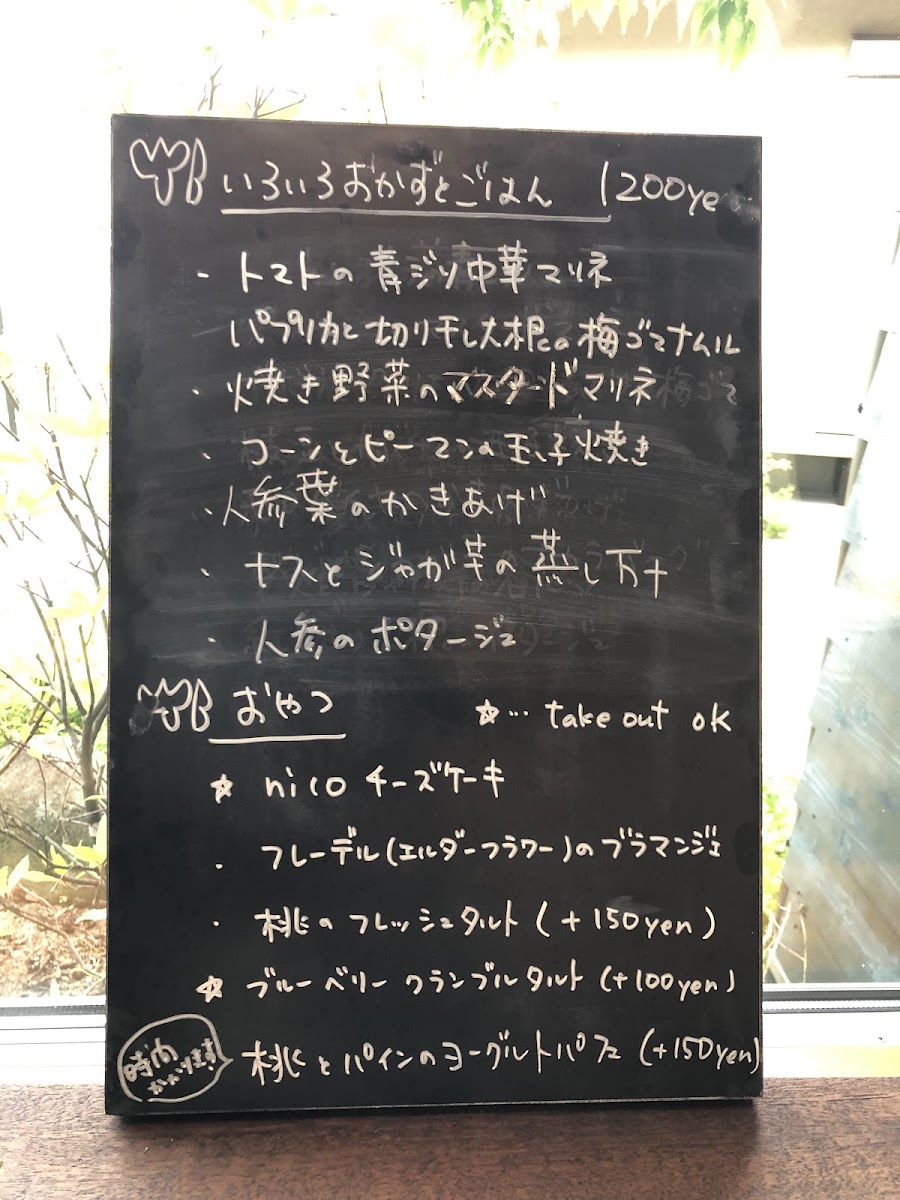 いろいろおかずとごはん 1200yen
・トマトの青ジソ中華マリネ
パプリカと切り干し大根の梅ゴマナムル
・焼き野菜のマスタードマリネ
・コーンとピーマンの玉子焼き
・人参葉のかきあげ
・ナスとジャガ芋の蒸し万十
・人参のポタージュ
おやつ ☆… take out ok
☆ nico チーズケーキ
・フレーデル(エルダーフラワー)のブラマンジェ
・桃のフレッシュタルト (+150yen)
☆ ブルーベリークランブルタルト (+100yen)
時間かかります! 桃とパインのヨーグルトパフェ (+150yen)